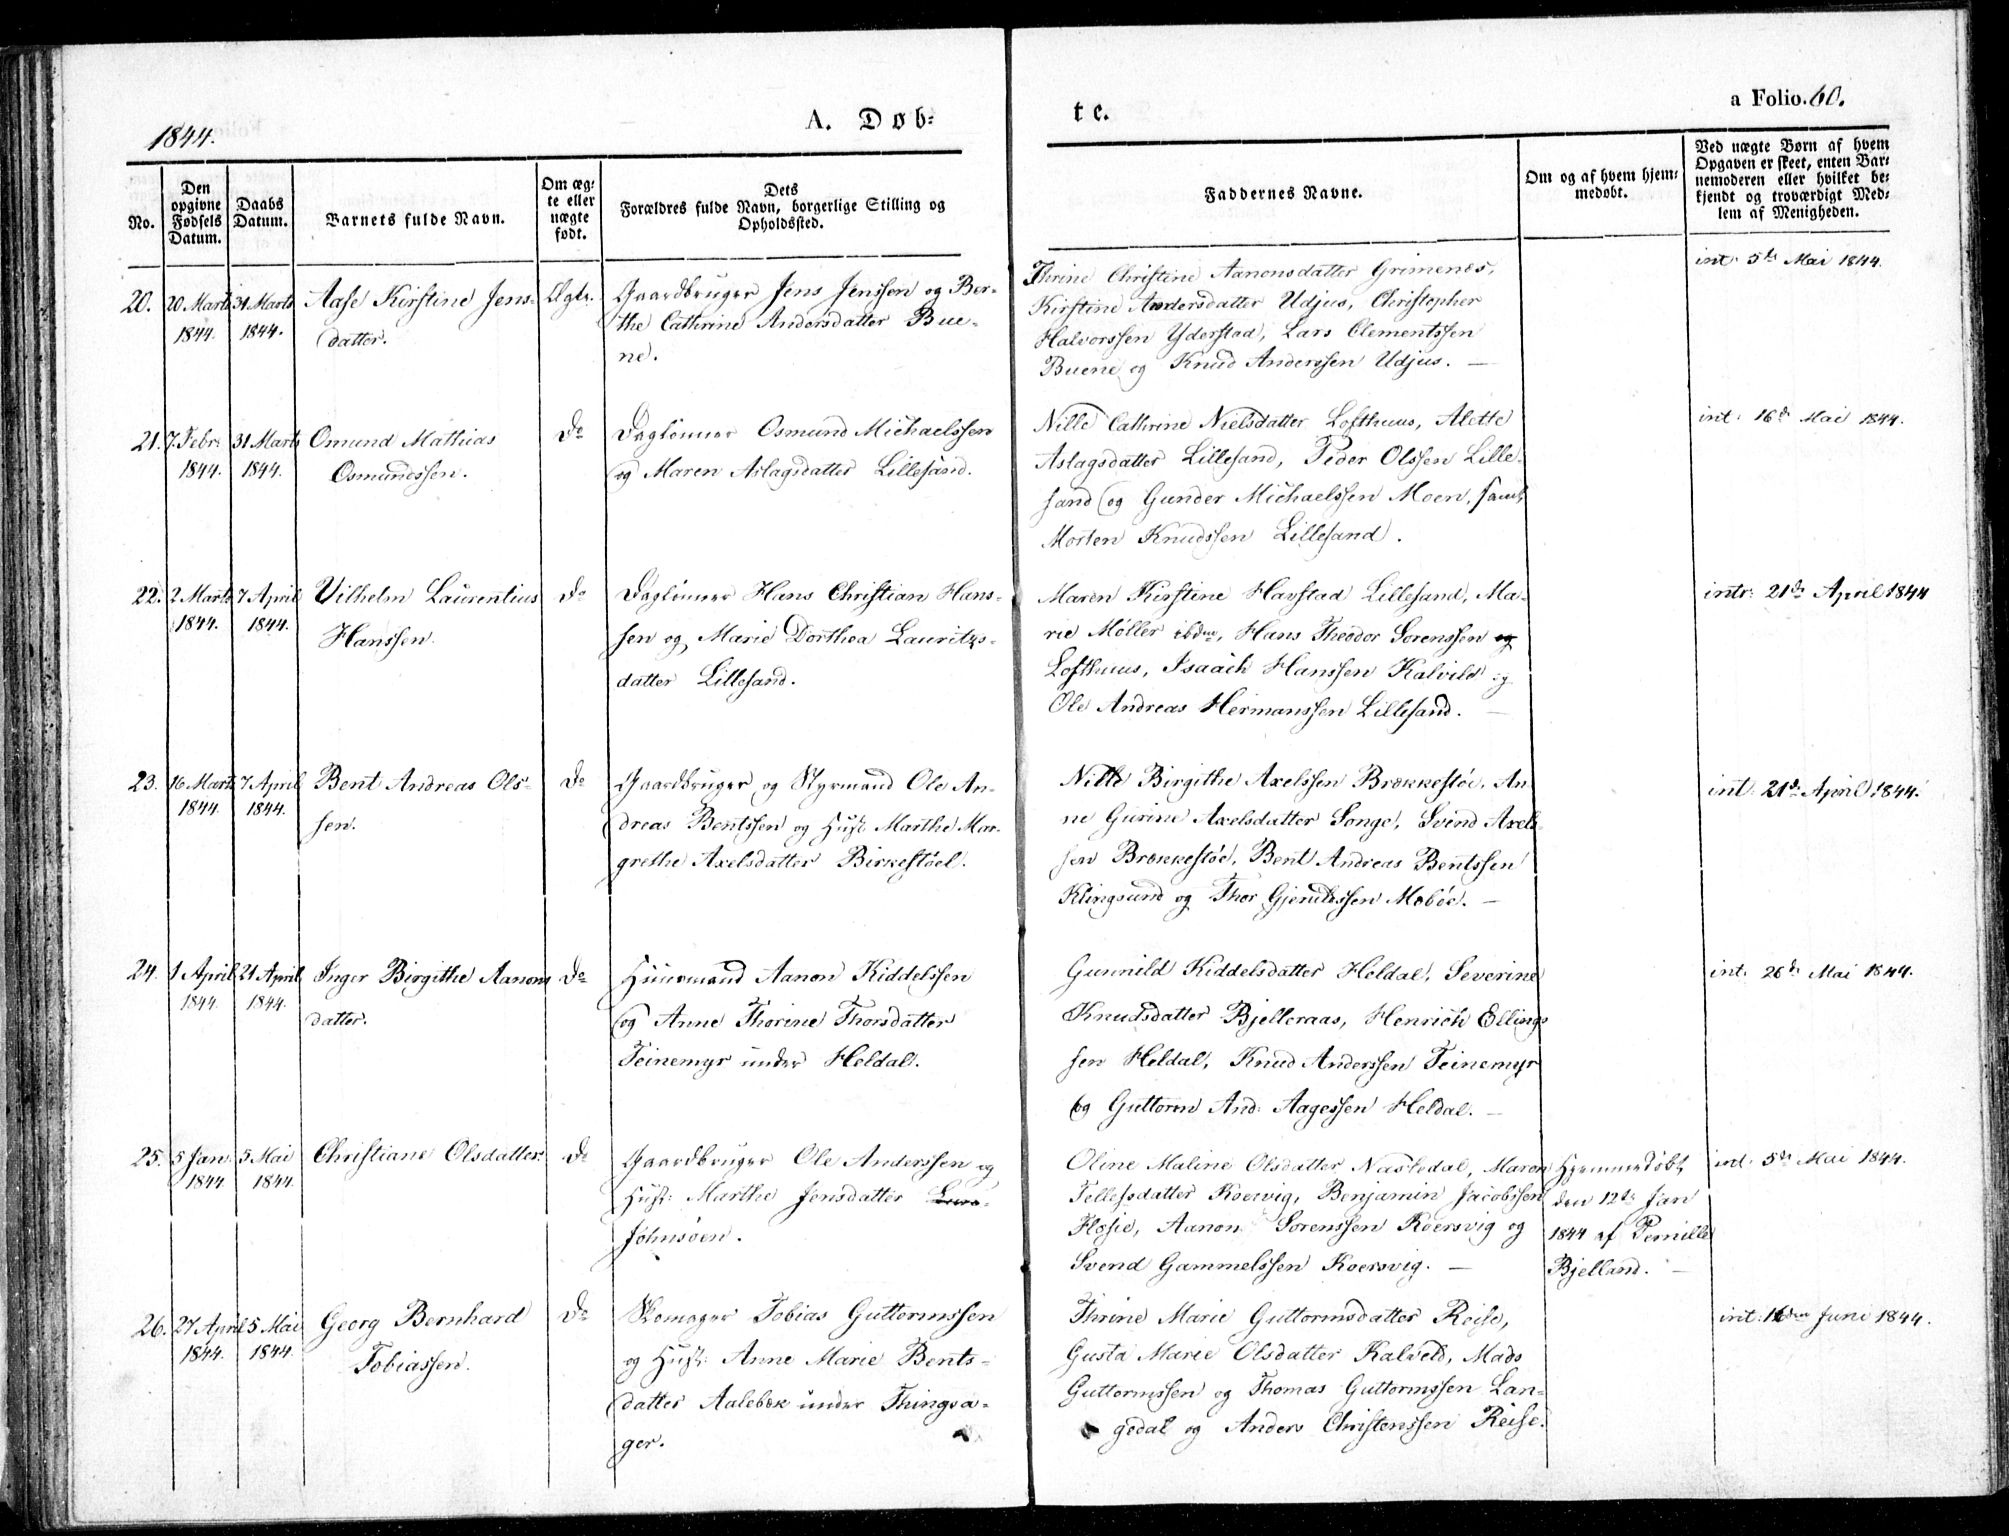 1844.
A. Døb-
te.
a Folio. 60.
No.
Den opgivne Fødsels Datum.
Daabs Datum.
Barnets fulde Navn.
Om ægte eller uægte født.
Dets
Forældres fulde Navn, borgerlige Stilling og
Opholdssted.
Faddernes Navne.
Om og af hvem hjem-
medøbt.
Ved uægte Børn af hvem
Opgaven er skeet, enten Bar-
nemoderen eller hvilket be-
kjendt og troværdigt Med-
lem af Menigheden.
20.
20 Marts
1844.
31 Marts
1844.
Aase Kirstine Jens-
datter.
Ægte.
Gaardbruger Jens Jenssen og Ber-
the Cathrine Andersdatter Bue-
ne.
Thrine Christine Aanonsdatter Grimenes,
Kirstine Andersdatter Udjus, Christopher
Halvorssen Yderstad, Lars Clementssen
Buene og Knud Anderssen Udjus. —
int: 5te Mai 1844.
21.
7 Febr:
1844.
31 Marts
1844.
Omund Mathias
Osmundssen.
Do
Daglønner Osmund Michaelssen
og Maren Aslagsdatter Lillesand.
Nille Cathrine Nielsdatter Lofthuus, Alette
Aslagsdatter Lillesand, Peder Olssen Lille-
sand og Gunder Michaelssen Moen, samt
Morten Knudssen Lillesand.
int: 16de Mai 1844.
22.
2 Marts
1844.
7 April
1844.
Vilhelm Laurentius
Hanssen.
Do
Daglønner Hans Christian Hans-
sen og Marie Dorthea Lauritzs-
datter Lillesand.
Maren Kirstine Havstad Lillesand, Ma-
rie Møller ibdm, Hans Theodor Sorenssen og
Lofthuus, Isaach Hanssen Kalvild og
Ole Andreas Hermanssen Lillesand. —
intr: 21de April 1844
23.
16 Marts
1844.
7 April
1844.
Bent Andreas Ols-
sen.
Do
Gaardbruger og Styrmand Ole An-
dreas Bentssen og Hust: Marthe Mar-
grethe Axelsdatter Birkestöel.
Nille Birgithe Axelssen Brækkestöe, An-
ne Gurine Axelsdatter Songe, Svend Axels-
sen Brækkestöe, Bent Andreas Bentssen
Klingsund og Thor Gjerulssen Moböe. —
int: 21de April 1844.
24.
1 April
1844.
21 April
1844.
Inger Birgithe Aanons
datter.
Do
Huusmand Aanon Kiddelssen
og Anne Thorine Thorsdatter
Teinemyr under Heldal.
Gunnild Kiddelsdatter Heldal, Severine
Knudsdatter Bjelleraas, Henrich Ellings
sen Heldal, Knud Anderssen Teinemyr
og Guttorm And: Aagessen Heldal. —
int: 26de Mai 1844.
25.
5 Jan
1844
5 Mai
1844.
Christiane Olsdatter.
Do
Gaardbruger Ole Anderssen og
Hust: Marthe Jensdatter
Johnsöen.
Oline Maline Olsdatter Nastedal, Maren
Tellefsdatter Koersvig, Benjamin Jacobssen
Hæsie, Aanon Sorenssen Koersvig og
Svend Gammelssen Koersvig. —
Hjemmedøbt
den 12te Jan
1844 af Pernille
Bjelland. —
int: 5te Mai 1844.
26.
27 April
1844.
5 Mai
1844.
Georg Bernhard
Tobiassen.
Do
Skomager Tobias Guttormssen
og Hust: Anne Marie Bents-
datter Aalebæk under Thingsa-
ger.
Thrine Marie Guttormsdatter Reise,
Gusta Marie Olsdatter Kalveld, Mads
Guttormssen og Thomas Guttormssen Lan-
gedal og Anders Christenssen Reise.
int: 16den Juni 1844.